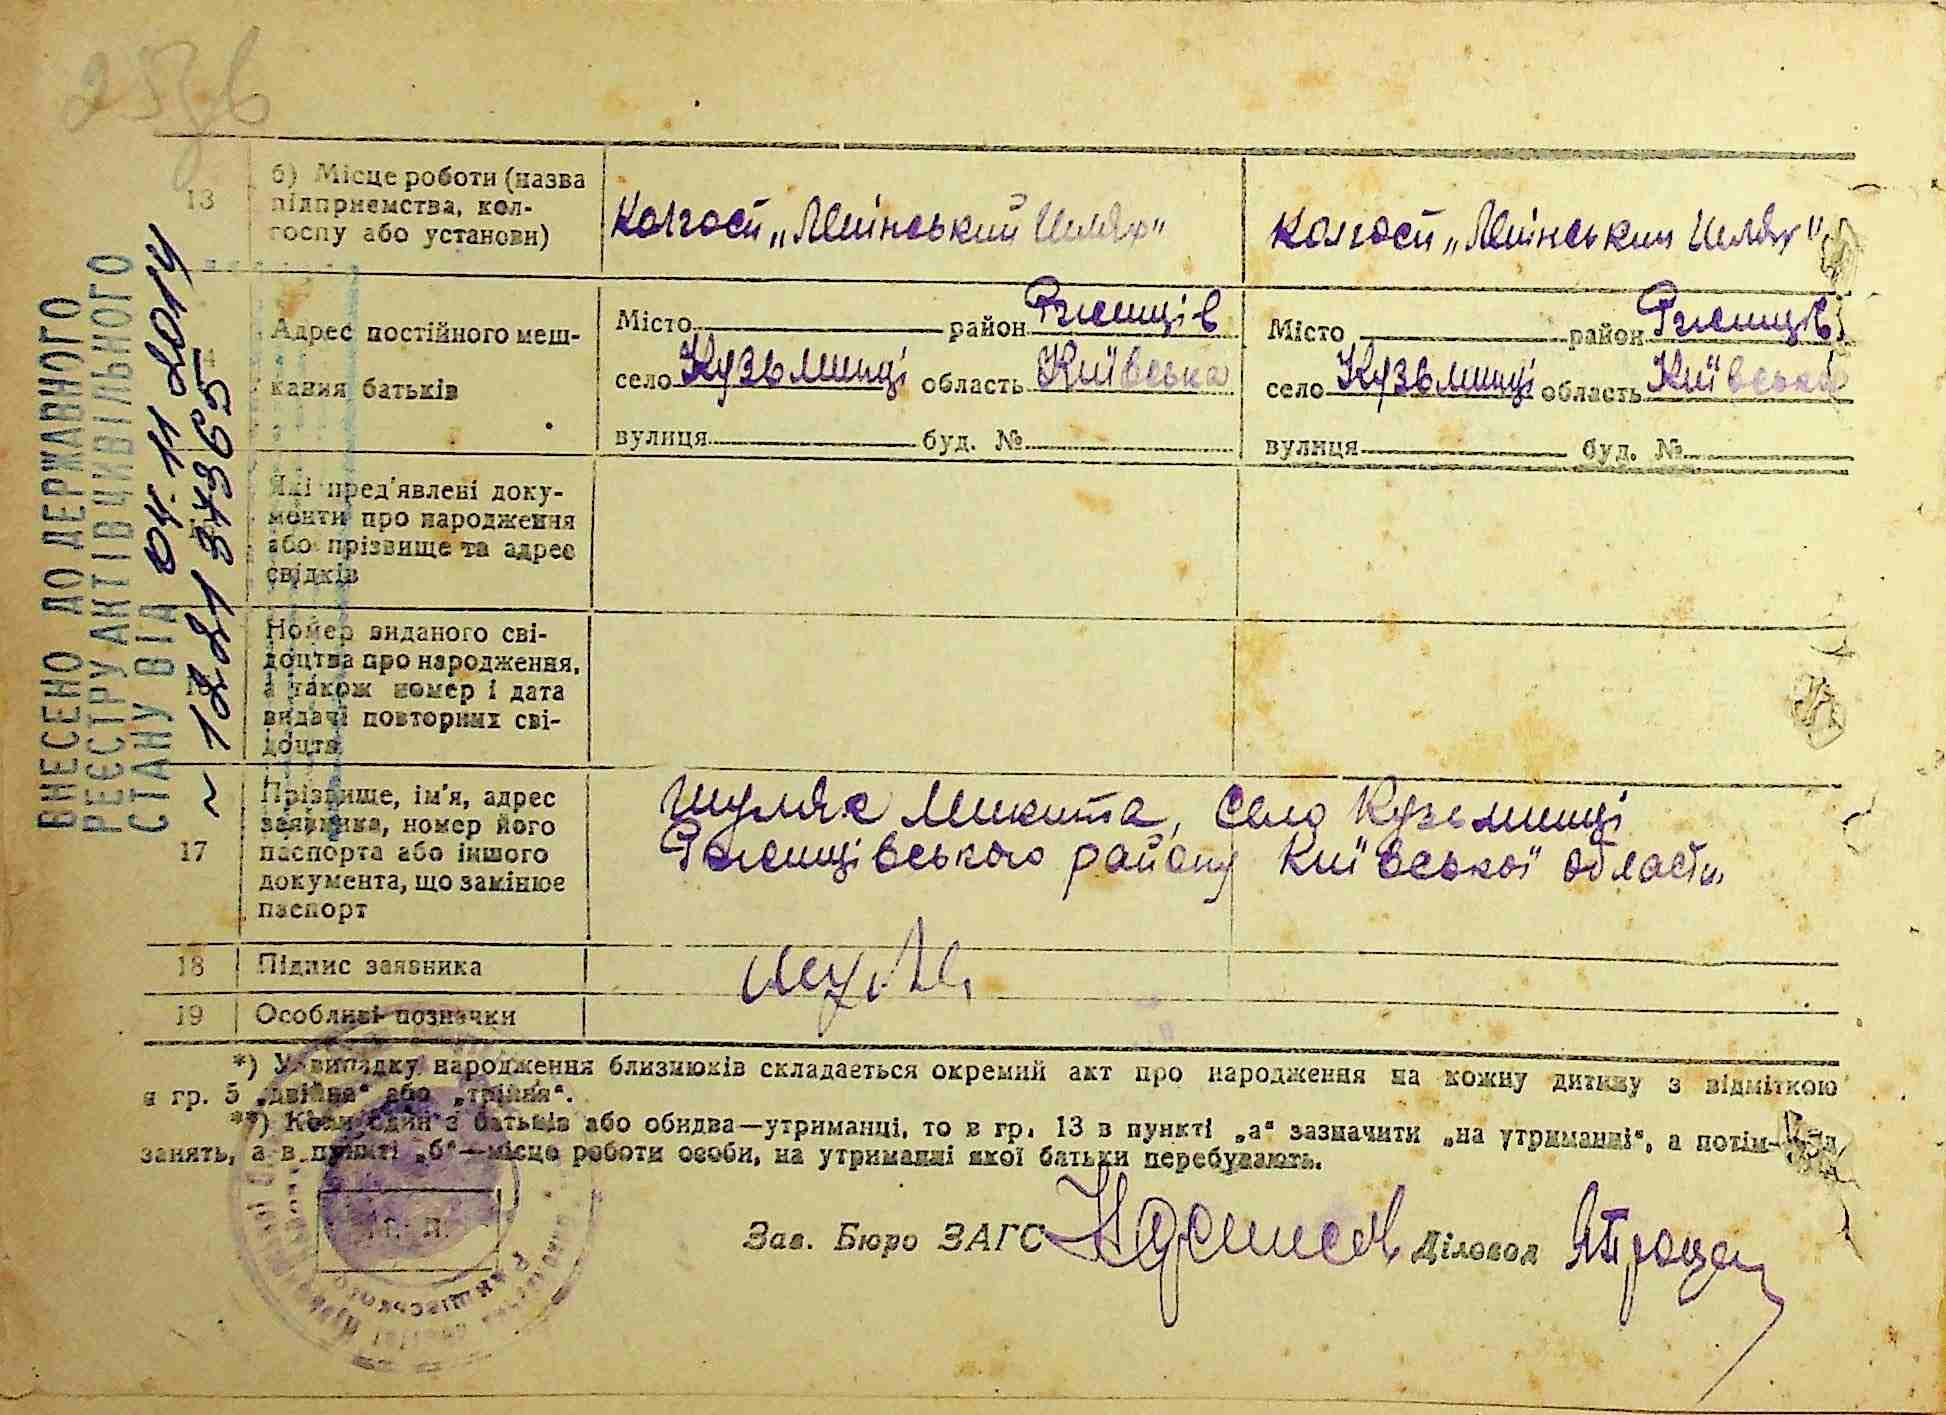 257 в
13
б) Місце роботи (назва
підприємства, кол-
госпу або установи)
Колгосп „Ленінський Шлях"
Колгосп „Ленінський Шлях"
14
Адрес постійного меш-
кання батьків
Місто район Ржищів
село Кузьминці область Київська
вулиця буд. №
Місто район Ржищів
село Кузьминці область Київська
вулиця буд. №
Які пред'явлені доку-
менти про народження
або прізвище та адрес
свідків
Номер виданого сві-
доцтва про народження,
а також номер і дата
видачі повторних сві-
доцтв
17
Прізвище, ім'я, адрес
заявника, номер його
паспорта або іншого
документа, що замінює
паспорт
Шуляк Микита, село Кузьминці
Ржищівського району Київської области
18
Підпис заявника
19
Особливі позначки
*) У випадку народження близнюків складається окремий акт про народження на кожну дитину з відміткою
в гр. 5 „двійня" або „трійня".
**) Коли один з батьків або обидва—утриманці, то в гр. 13 в пункті „а" зазначити „на утриманні", а потім—рід
занять, а в пункті „б"—місце роботи особи, на утриманні якої батьки перебувають.
М. П.
Зав. Бюро ЗАГС
Діловод
ВНЕСЕНО ДО ДЕРЖАВНОГО
РЕЄСТРУ АКТІВ ЦИВІЛЬНОГО
СТАНУ ВІД 04.11.2014
~ 122134365